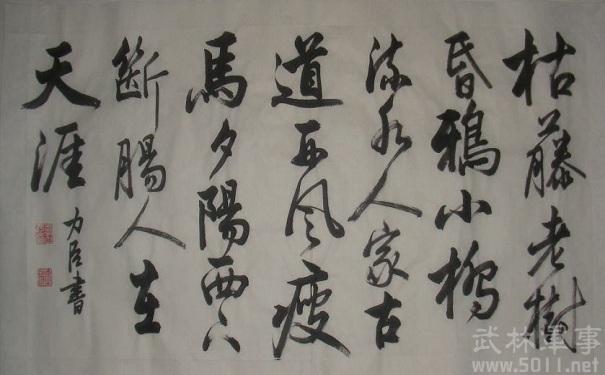 枯藤老樹
昏鴉小橋
流水人家古
道西风瘦
馬夕陽西下
斷腸人在
天涯
力臣書
武林軍事
www.5011.net